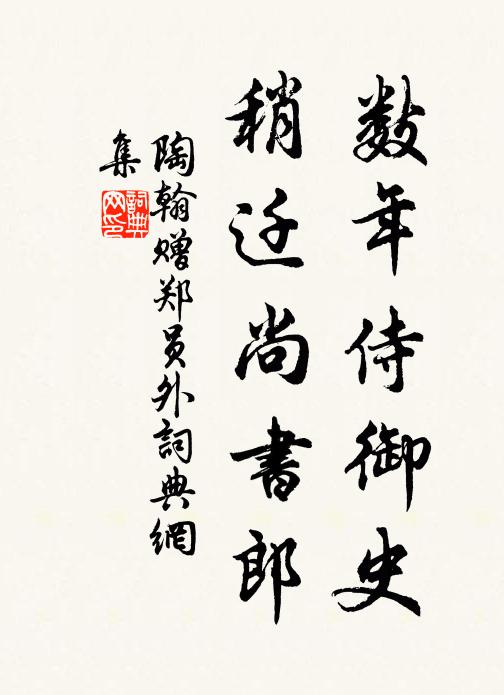 数年侍御史
稍迁尚书郎
陶翰赠郑员外詞典網
集
詞典
网印